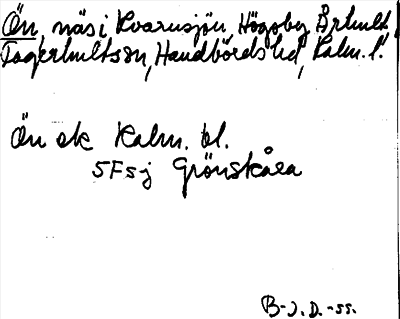 Ön, näs i Kvarnsjön, Högsby,
Fagerhultssn, Handbörds hd, Kalm. l.
Ön ek Kalm. bl.
5Fsj Grönskåra
B-J. D. -55.